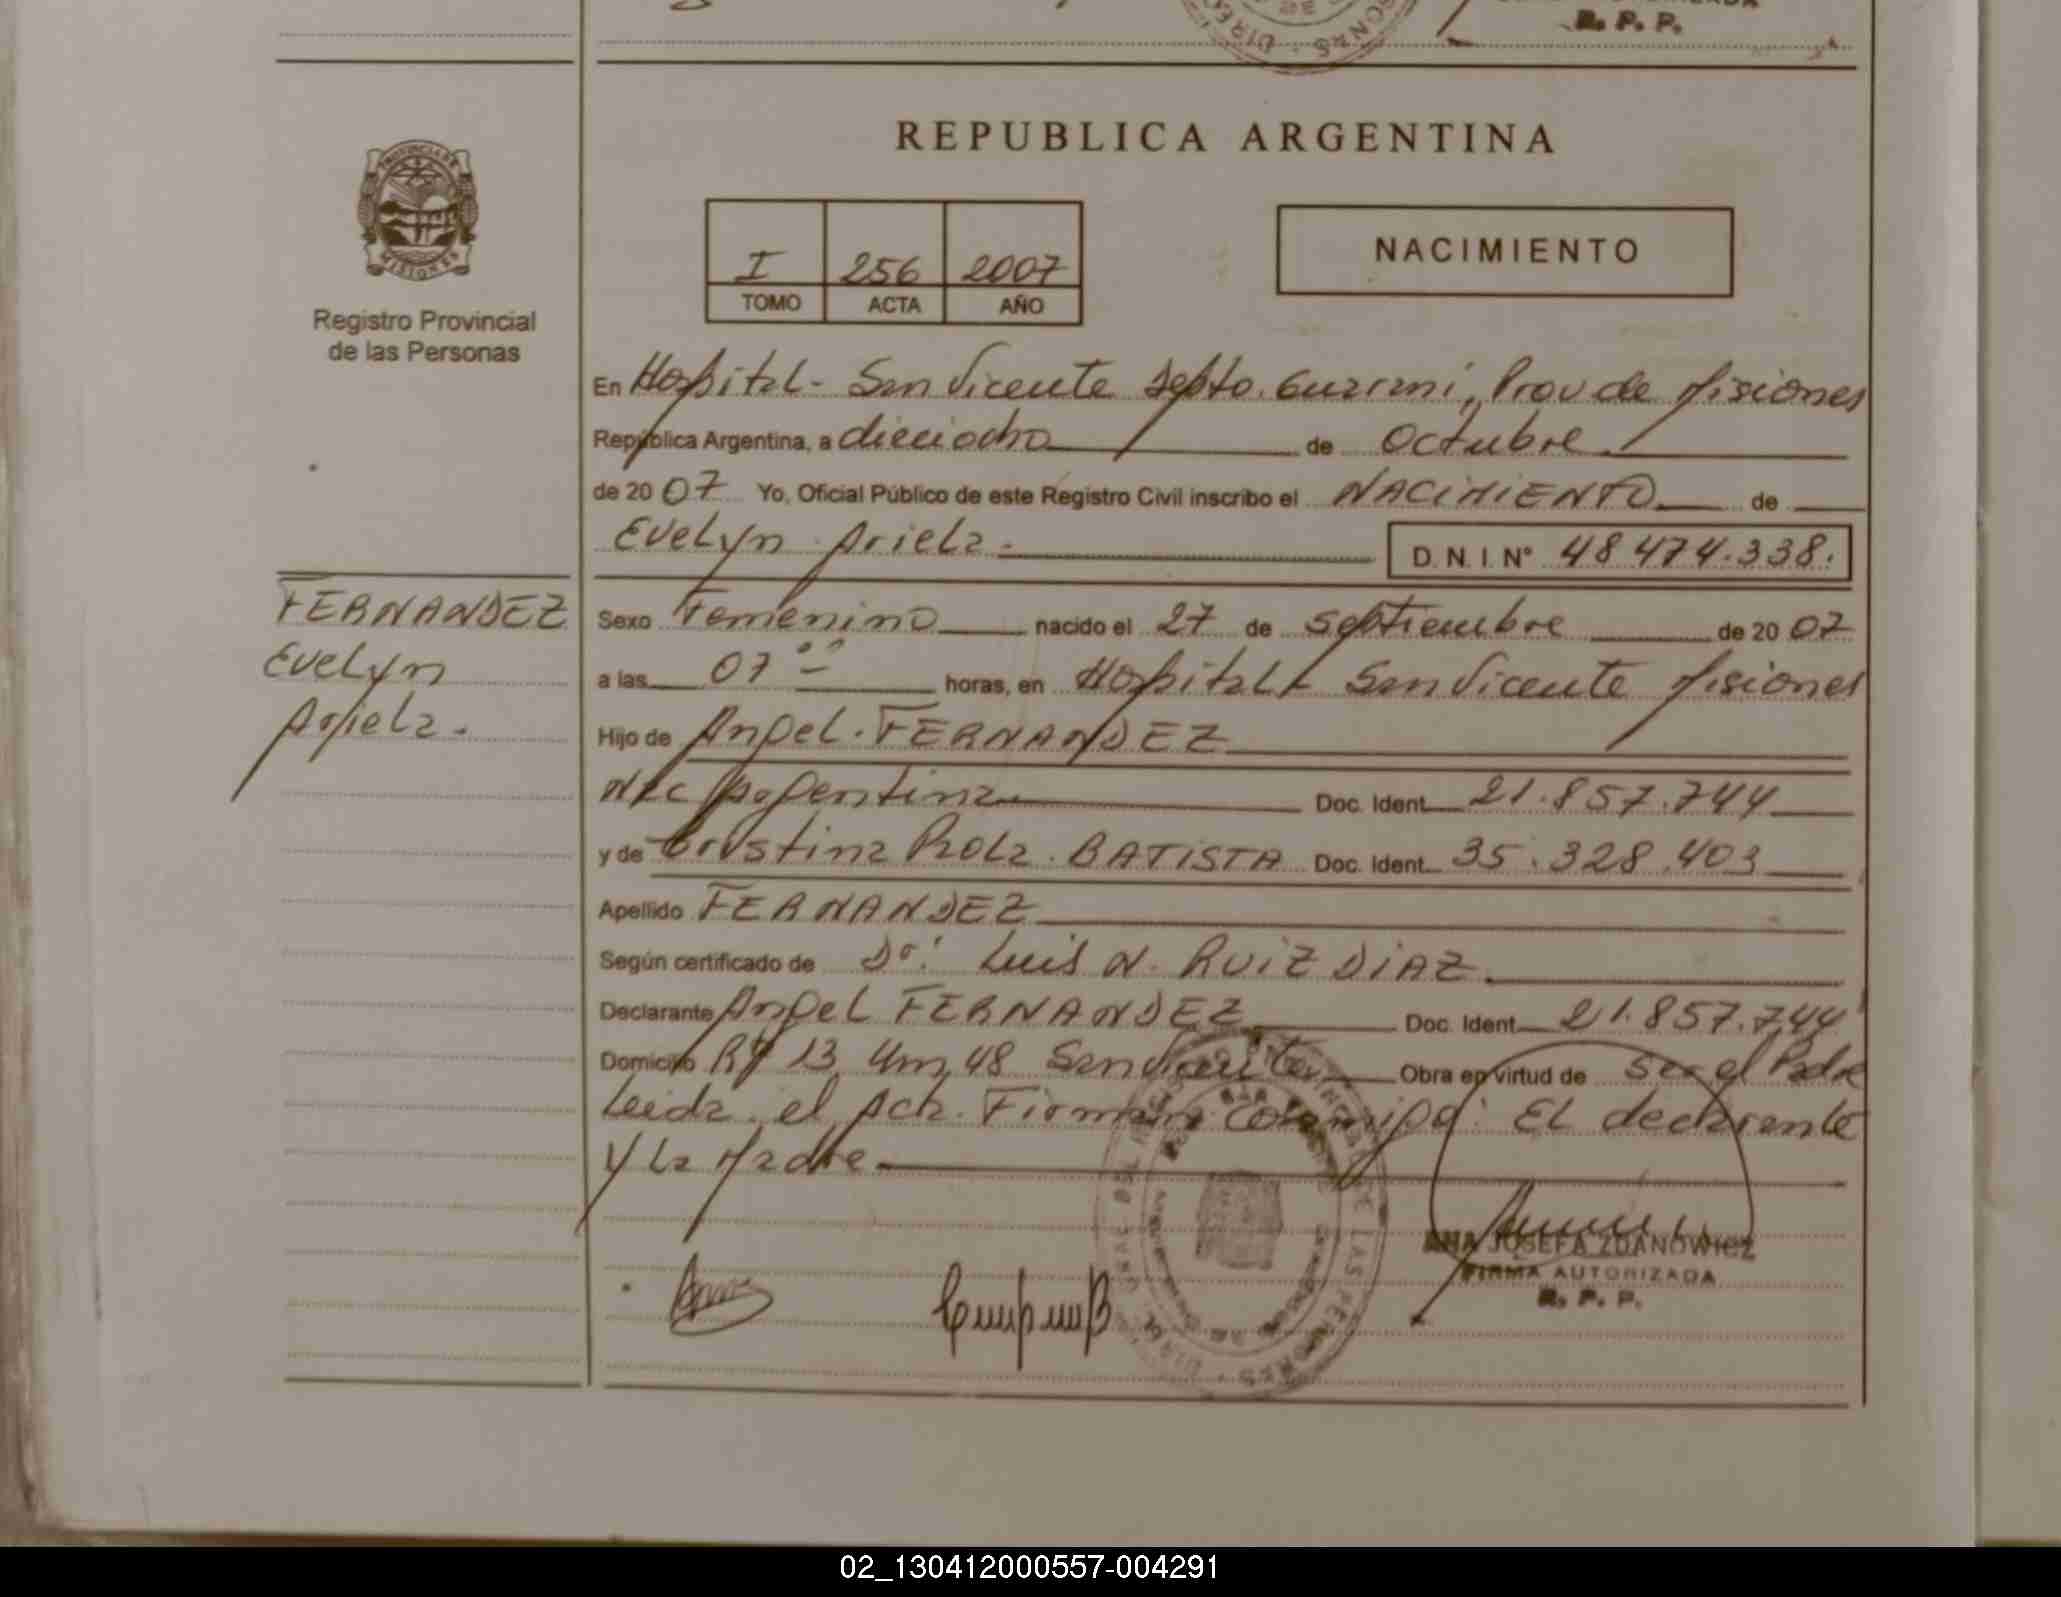 R. P. P.
REPUBLICA ARGENTINA
PROVINCIA DE
MISIONES
I 256 2007
TOMO ACTA AÑO
NACIMIENTO
Registro Provincial
de las Personas
En Hospital - San Vicente Depto. Guarani, Prov de Misiones
República Argentina, a dieciocho de Octubre
de 20 07 Yo, Oficial Público de este Registro Civil inscribo el NACIMIENTO de
Evelyn Ariela - D. N. I. N° 48 474.338.
FERNANDEZ
Evelyn
Ariela -
Sexo Femenino nacido el 27 de Septiembre de 20 07
a las 07 00 horas, en Hospital San Vicente Misiones
Hijo de Angel. FERNANDEZ
Nac Argentina Doc. Ident. 21.857.744
y de Cristina Paola. BATISTA Doc. Ident. 35.328.403
Apellido FERNANDEZ
Según certificado de Dr. Luis N. RUIZ DIAZ
Declarante Angel FERNANDEZ Doc. Ident. 21.857.744
Domicilio RP 13 Km 48 San Vicente Obra en virtud de Ser el Padre
Leida el Acta. Firman Conmigo: EL declarante
y La Madre
ANA JOSEFA ZDANOWICZ
FIRMA AUTORIZADA
R. P. P.
02_130412000557-004291